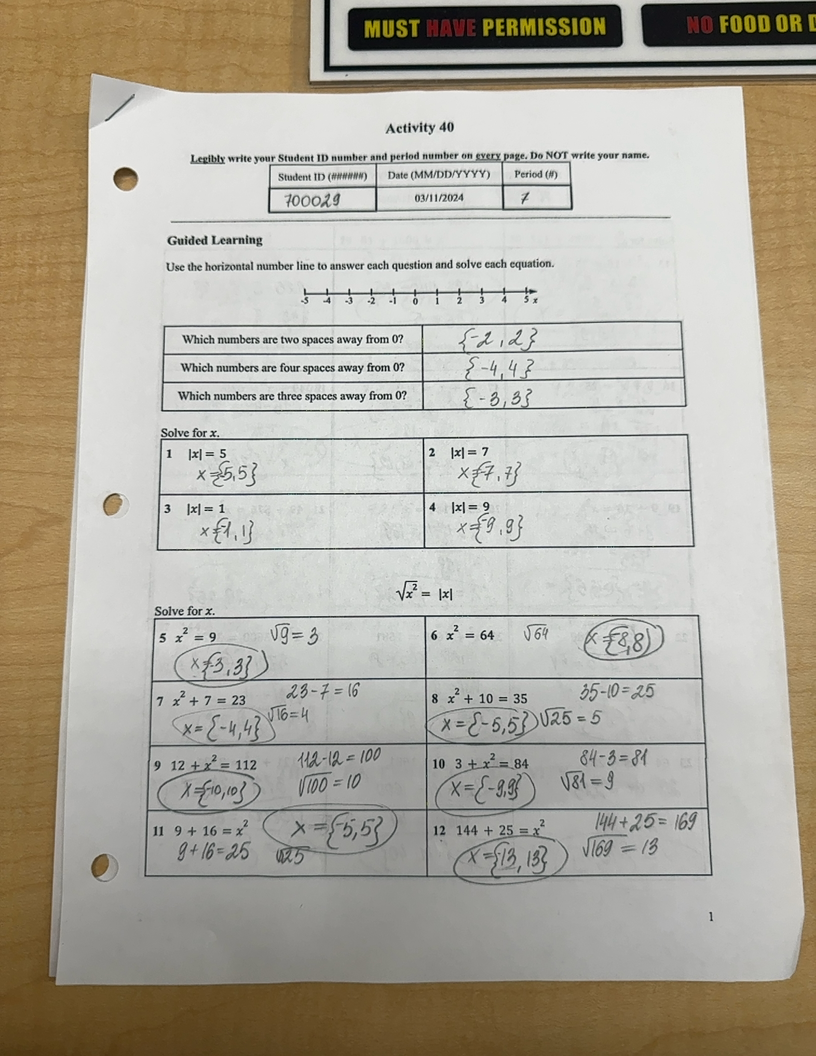 MUST HAVE PERMISSION
NO FOOD OR D
Activity 40
Legibly write your Student ID number and period number on every page. Do NOT write your name.
Student ID (######) Date (MM/DD/YYYY) Period (#)
700029 03/11/2024 7
Guided Learning
Use the horizontal number line to answer each question and solve each equation.
-5 -4 -3 -2 -1 0 1 2 3 4 5 x
Which numbers are two spaces away from 0? {-2, 2}
Which numbers are four spaces away from 0? {-4, 4}
Which numbers are three spaces away from 0? {-3, 3}
Solve for x.
1 |x| = 5
x={-5,5}
2 |x| = 7
x={-7,7}
3 |x| = 1
x={-1,1}
4 |x| = 9
x={-9,9}
√x² = |x|
Solve for x.
5 x² = 9 √9 = 3
x={-3,3}
6 x² = 64 √64 x={-8,8}
7 x² + 7 = 23 23-7=16
x={-4,4} √16=4
8 x² + 10 = 35 35-10=25
x={-5,5} √25=5
9 12 + x² = 112 112-12=100
x={-10,10} √100=10
10 3 + x² = 84 84-3=81
x={-9,9} √81=9
11 9 + 16 = x² x={-5,5}
9+16=25 √25
12 144 + 25 = x² 144+25=169
x={-13,13} √169=13
1